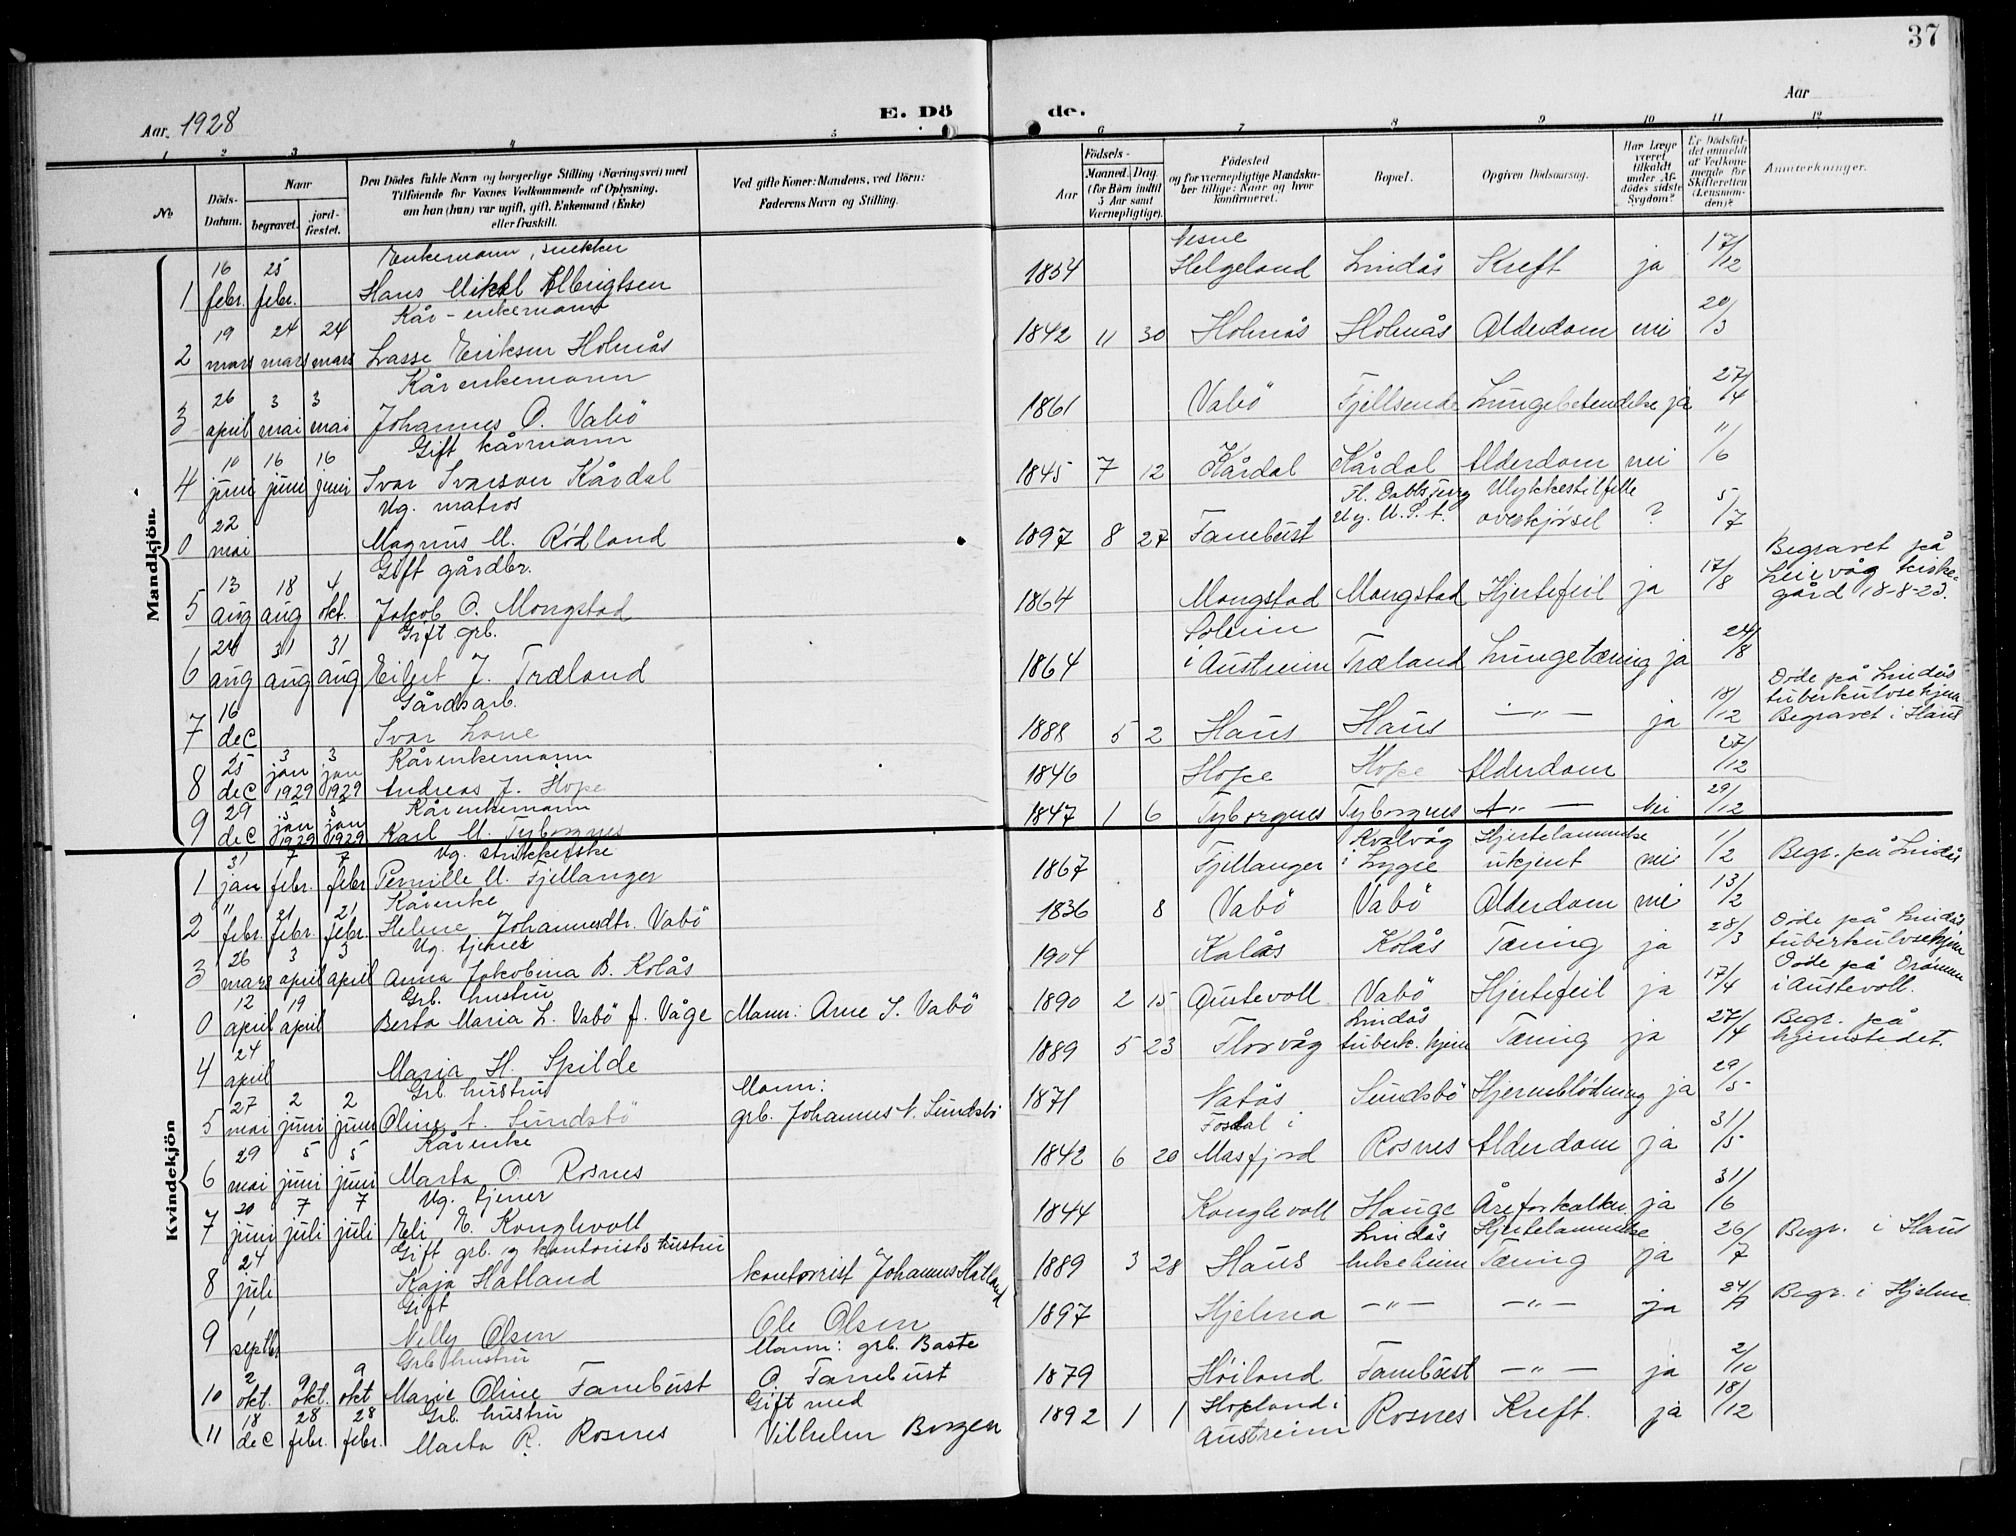 37
Aar. 1928
E. Dö
de.
Aar
1 2 3 4 5 6 7 8 9 10 11 12
No
Döds-Datum.
Naar
begravet.
jord-fæstet.
Den Dödes fulde Navn og borgerlige Stilling (Næringsvei) med
Tilföiende for Voxnes Vedkommende af Oplysning,
om han (hun) var ugift, gift, Enkemand (Enke)
eller fraskilt.
Ved gifte Koner: Mandens, ved Börn:
Faderens Navn og Stilling.
Födsels-
Aar
Maaned. Dag.
(for Börn indtil
5 Aar samt
Værnepligtige).
Födested
og for værnepligtige Mandska-
ber tillige: Naar og hvor
konfirmeret.
Bopæl.
Opgiven Dödsaarsag.
Har Læge
været
tilkaldt
under Af-
dödes sidste
Sygdom?
Er Dödsfal-
det anmeldt
af Vedkom-
mende for
Skifteretten
(Lensman-
den)?
Anmærkninger.
Mandkjön.
Enkemann, snekker
1 16 febr. 25 febr. Hans Mikal Albrigtsen 1854 Nesne Helgeland Lindås Kreft ja 17/12
Kår-enkemann
2 19 mars 24 mars 24 mars Lasse Eriksen Holmås 1842 11 30 Holmås Holmås Alderdom nei 20/3
Kårenkemann
3 26 april 3 mai 3 mai Johannes O. Vabö 1861 Vabö Fjellsende Lungebetendelse ja 27/4
Gift kårmann
4 10 juni 16 juni 16 juni Ivar Ivarson Kårdal 1845 7 12 Kårdal Kårdal Alderdom nei 11/6
Ug. matros
0 22 mai Magnus M. Rödland 1897 8 27 Fanebust Ft. Dobbs Ferry U.S.A. Ulykkestilfelle overkjörsel ? 5/7
Gift gårdbr.
5 13 aug 18 aug 4 okt. Jakob O. Mongstad 1864 Mongstad Mongstad Hjertefeil ja 17/8 Begravet på Leirvåg kirke-gård 18-8-28.
Gift grb.
6 24 aug 31 aug 31 aug Eilert J. Træland 1864 Soleim i Austreim Træland Lungetæring ja 24/8
Gårdsarb.
7 16 dec Ivar Lone 1888 5 2 Haus Haus —"— ja 18/12 Döde på Lindås tuberkulosehjem Begravet i Haus
Kårenkemann
8 25 dec 3 jan 1929 3 jan 1929 Andreas J. Hope 1846 Hope Hope Alderdom 27/12
Kårenkemann
9 29 dec 5 jan 1929 5 jan 1929 Karl M. Tyborgnes 1847 1 6 Tyborgnes Tyborgnes —"— Nei 29/12
Kvindekjön
Ug. strikkerske
1 31 jan 7 febr. 7 febr Pernille M. Fjellanger 1867 Fjellanger Kvalvåg i Lygre Hjertelammelse ukjent nei 1/2 Begr. på Lindås
Kårenke
2 11 febr. 21 febr. 21 febr. Helene Johannesdtr. Vabö 1836 8 Vabö Vabö Alderdom nei 13/2
Ug. tjener
3 26 mars 3 april 3 april Anna Jakobina B. Kolås 1904 Kolås Kolås Tæring ja 28/3 Döde på Lindås tuberkulosehjem
Grb. hustru
0 12 april 19 april Berta Maria L. Vabö f. Våge Mann: Arne I. Vabö 1890 2 15 Austevoll Vabö Hjertefeil ja 17/4 Döde på i Austevoll.
4 24 april Maria H. Spilde 1889 5 23 Florvåg Lindås tuberk. hjem Tæring ja 27/4 Begr. på hjemstedet.
Grb. hustru
5 27 mai 2 juni 2 juni Oline A. Sundsbö Mann: grb. Johannes N. Sundsbö 1871 Natås Sundsbö Hjerneblödning ja 29/5
Kårenke
6 29 mai 5 juni 5 juni Marta O. Rosnes 1842 6 20 Fosdal i Masfjord Rosnes Alderdom ja 31/5
Ug. tjener
7 20 juni 7 juli 7 juli Eli E. Konglevoll 1844 Konglevoll Hauge Åreforkalkn. Hjertelammelse ja 31/6
Gift grb. og kontorists hustru
8 24 juli Kaja Hatland kontorist Johannes Hatland 1889 3 28 Haus Lindås Tæring ja 26/7 Begr. i Haus
Gift
9 1 septbr Nelly Olsen Ole Olsen 1897 Hjelma —"— —"— ja Begr. i Hjelme
Grb. hustru
10 2 okt. 9 okt. 9 okt Marie Oline Fanebust Mann: grb. Baste O. Fanebust 1879 Höiland Fanebust —"— ja 2/10
Grb. hustru
11 18 dec 28 febr. 28 febr. Marta R. Rosnes Gift med Vilhelm Borgen 1892 1 1 Hopland i Austreim Rosnes Kreft. ja 18/12